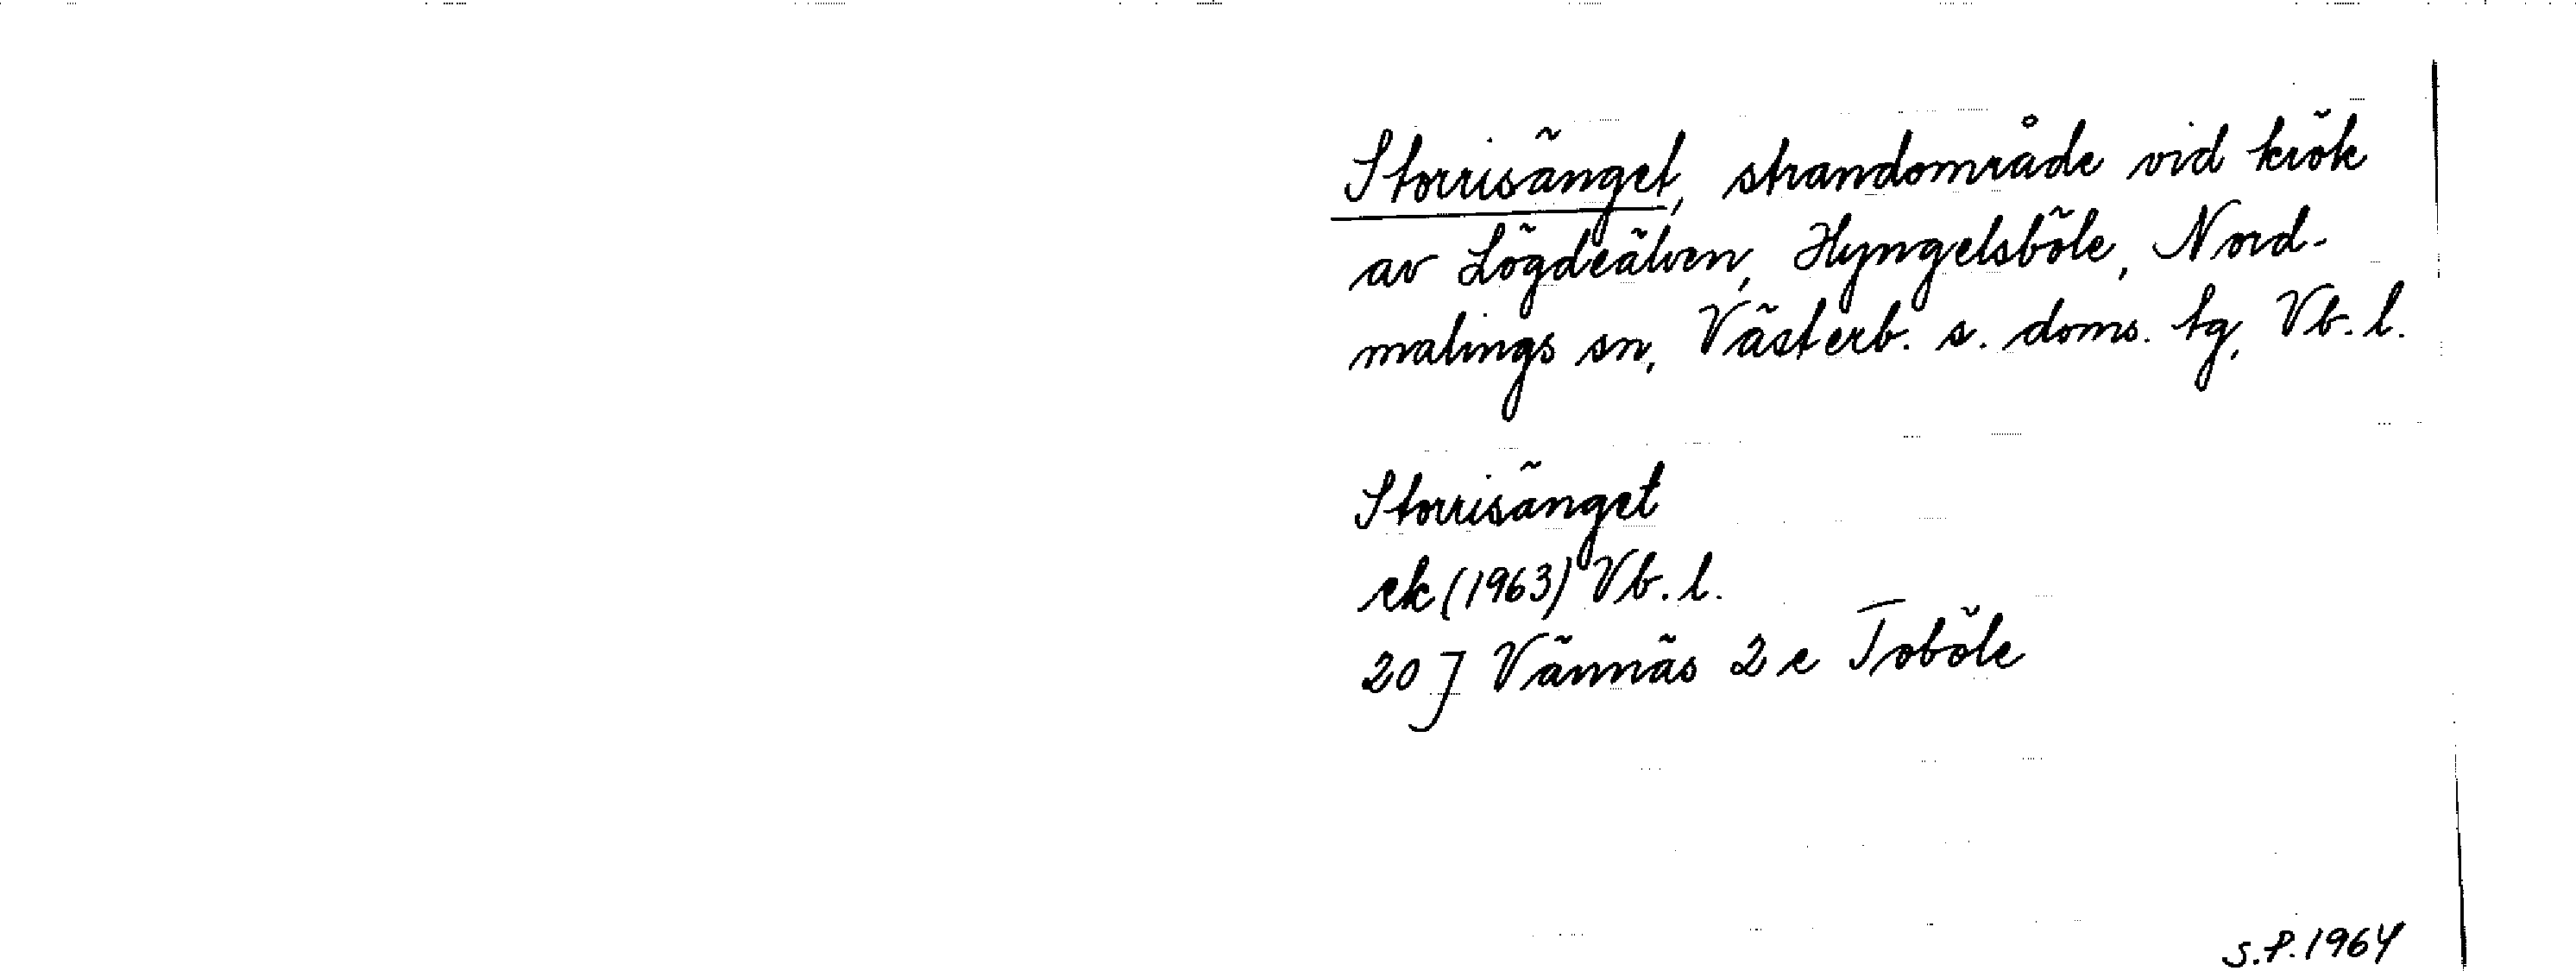 Storrisänget, strandområde vid krök
av Lögdeälven, Hyngelsböle, Nord-
malings sn, Västerb. s. doms. tg, Vb. l.
Storrisänget
ek (1963) Vb. l.
20 J Vännäs 2 e Toböle
S.P. 1964